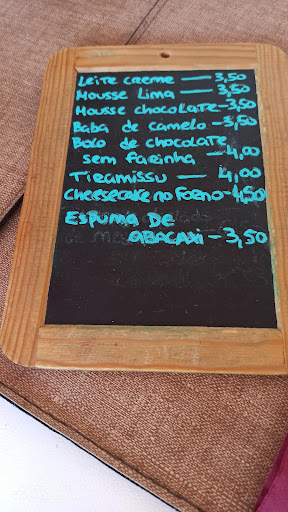 Leite creme — 3,50
Mousse Lima — 3,50
Mousse chocolate - 3,50
Baba de camelo - 3,50
Bolo de chocolate
sem farinha — 4,00
Tiramissu — 4,00
Cheesecake no Forno - 4,50
Espuma De
ABACAXi - 3,50